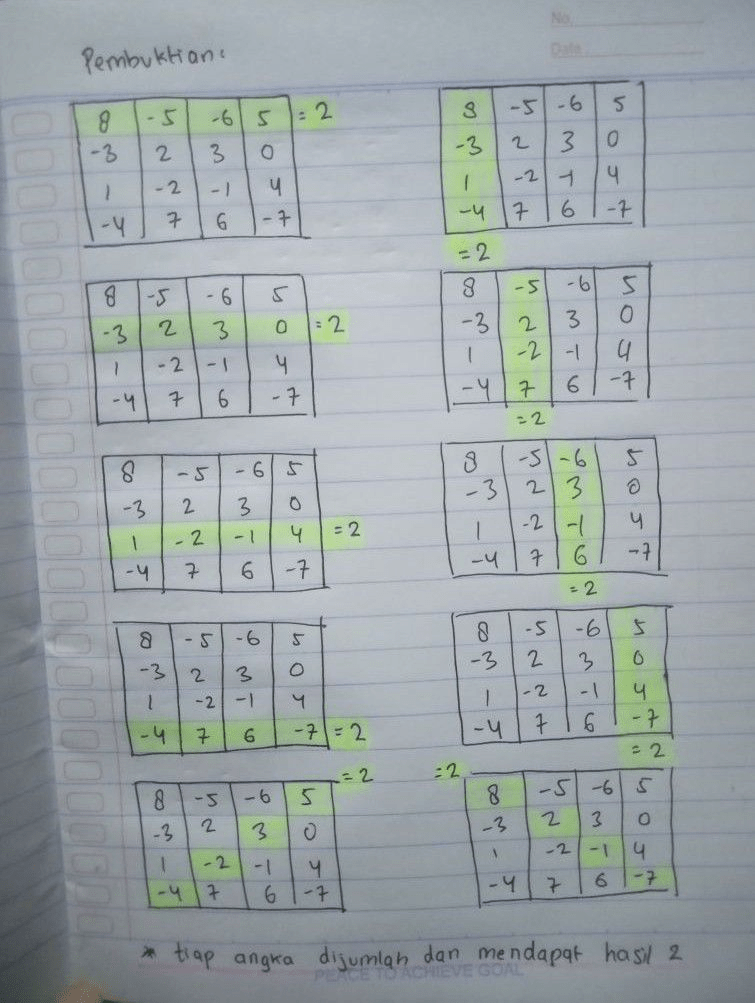 No.
Date
Pembuktian:
8 -5 -6 5 = 2
-3 2 3 0
1 -2 -1 4
-4 7 6 -7
8 -5 -6 5
-3 2 3 0
1 -2 -1 4
-4 7 6 -7
= 2
8 -5 -6 5
-3 2 3 0 = 2
1 -2 -1 4
-4 7 6 -7
8 -5 -6 5
-3 2 3 0
1 -2 -1 4
-4 7 6 -7
= 2
8 -5 -6 5
-3 2 3 0
1 -2 -1 4 = 2
-4 7 6 -7
8 -5 -6 5
-3 2 3 0
1 -2 -1 4
-4 7 6 -7
= 2
8 -5 -6 5
-3 2 3 0
1 -2 -1 4
-4 7 6 -7 = 2
8 -5 -6 5
-3 2 3 0
1 -2 -1 4
-4 7 6 -7
= 2
= 2
8 -5 -6 5
-3 2 3 0
1 -2 -1 4
-4 7 6 -7
= 2
8 -5 -6 5
-3 2 3 0
1 -2 -1 4
-4 7 6 -7
* tiap angka dijumlah dan mendapat hasil 2
PEACE TO ACHIEVE GOAL